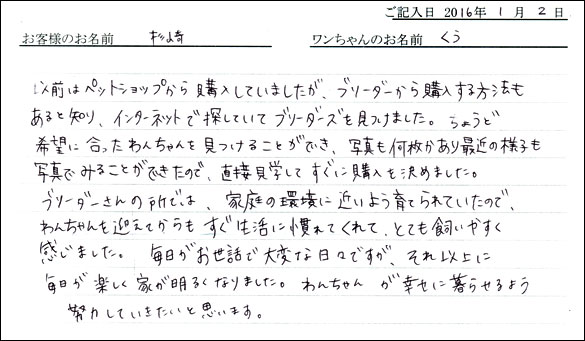 ご記入日 2016年 1月 2日
お客様のお名前 杉崎 ワンちゃんのお名前 くう
以前はペットショップから購入していましたが、ブリーダーから購入する方法も
あると知り、インターネットで探していてブリーダーズを見つけました。ちょうど
希望に合ったわんちゃんを見つけることができ、写真も何枚かあり最近の様子も
写真でみることができたので、直接見学してすぐに購入を決めました。
ブリーダーさんの所では、家庭の環境に近いよう育てられていたので、
わんちゃんを迎えてからもすぐ生活に慣れてくれて、とても飼いやすく
感じました。毎日がお世話で大変な日々ですが、それ以上に
毎日が楽しく家が明るくなりました。わんちゃんが幸せに暮らせるよう
努力していきたいと思います。